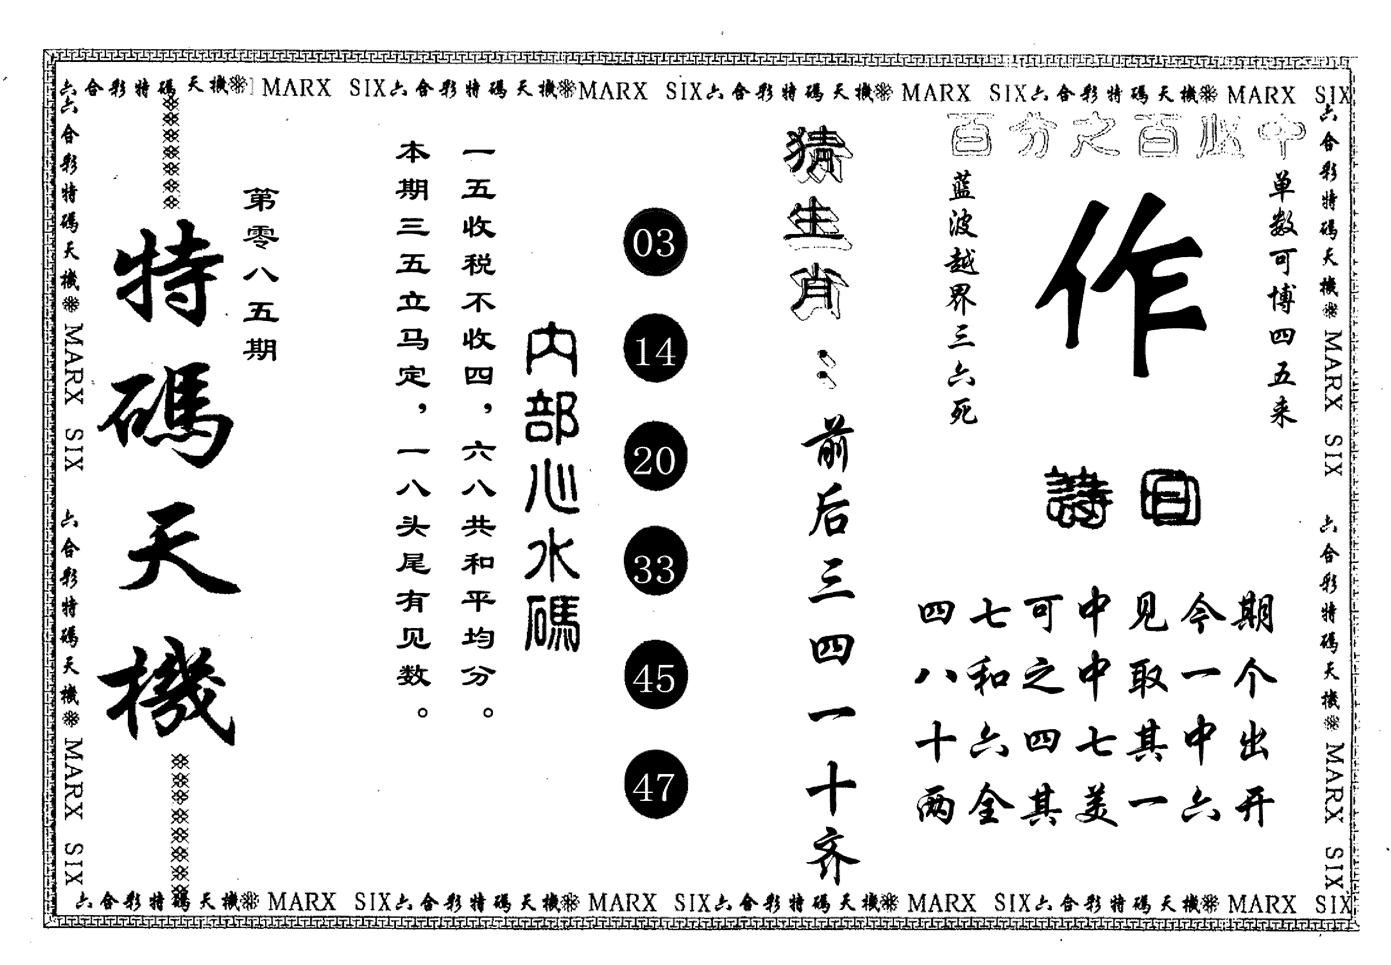 六合彩特碼天機 MARX SIX六合彩特碼天機MARX SIX六合彩特碼天機 MARX SIX六合彩特碼天機 MARX SIX
六合彩特碼天機 MARX SIX 六合彩特碼天機 MARX SIX
特碼天機
第零八五期
一五收税不收四，六八共和平均分。
本期三五立马定，一八头尾有见数。
内部心水碼
03
14
20
33
45
47
猜生肖：前后三四一十齐
百分之百必中
单数可博四五来
作
蓝波越界三六死
詩曰
四七可中见今期
八和之中取一个
十六四七其中出
两全其美一六开
六合彩特碼天機 MARX SIX 六合彩特碼天機 MARX SIX
六合彩特碼天機 MARX SIX六合彩特碼天機 MARX SIX六合彩特碼天機 MARX SIX六合彩特碼天機 MARX SIX